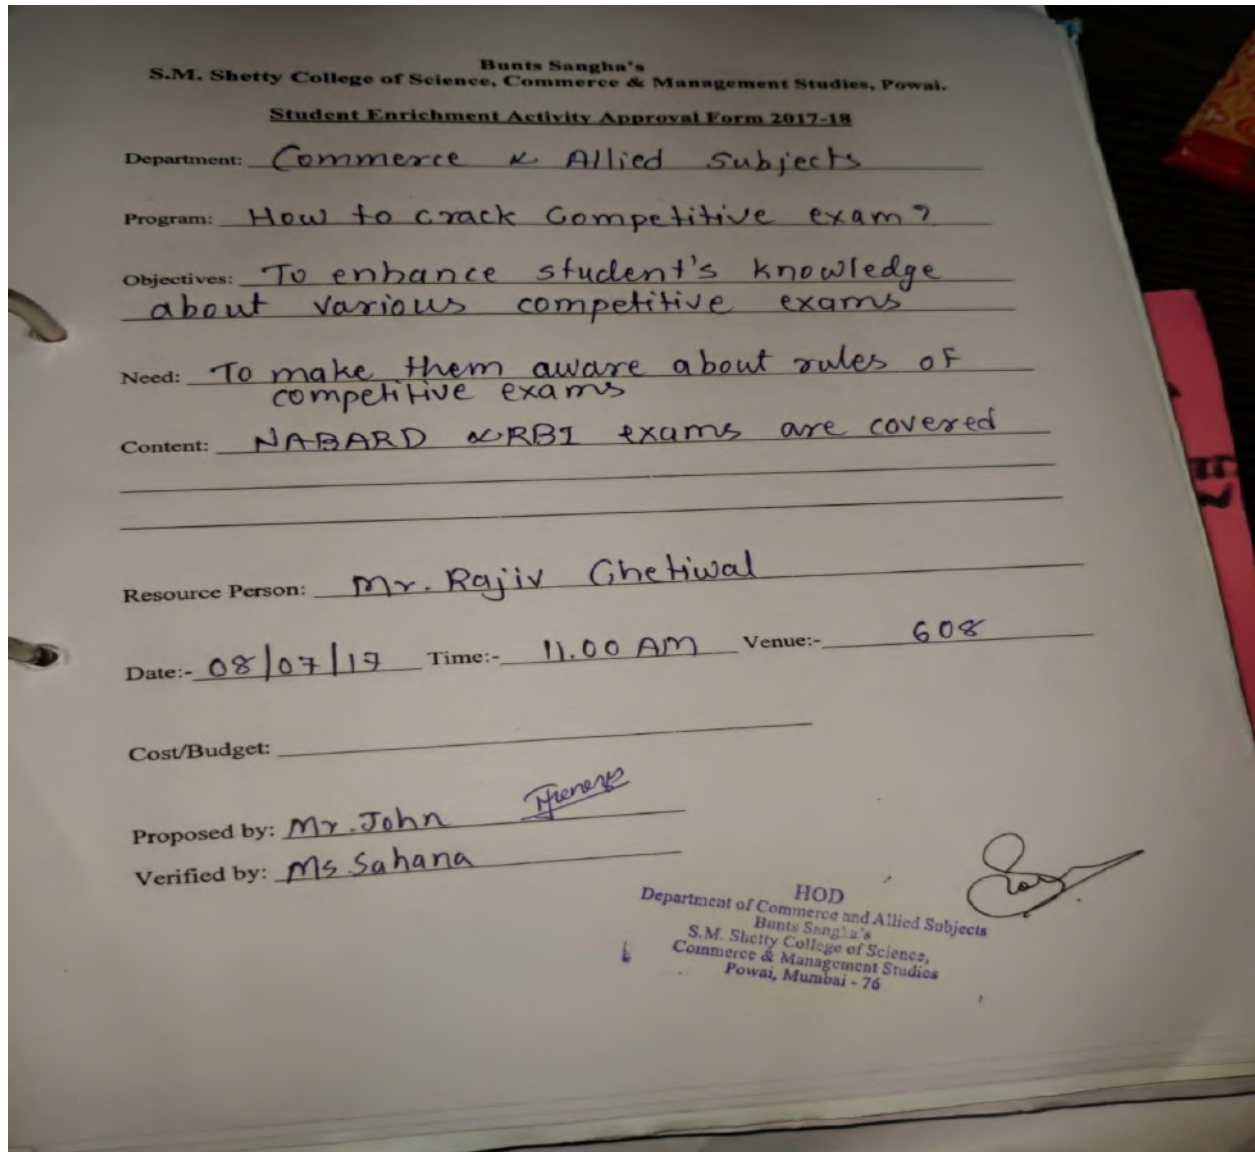 Bunts Sangha's
S.M. Shetty College of Science, Commerce & Management Studies, Powai.
Student Enrichment Activity Approval Form 2017-18
Department: Commerce & Allied subjects
Program: How to crack Competitive exam?
Objectives: To enhance student's knowledge
about various competitive exams
Need: To make them aware about rules of
competitive exams
Content: NABARD & RBI exams are covered
Resource Person: Mr. Rajiv Ghetiwal
Date:- 08/07/17 Time:- 11.00 AM Venue:- 608
Cost/Budget:
Proposed by: Mr. John
Verified by: Ms Sahana
HOD
Department of Commerce and Allied Subjects
Bunts Sangha's
S.M. Shetty College of Science,
Commerce & Management Studies
Powai, Mumbai - 76